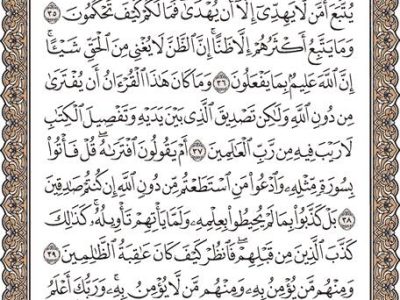 يُتَّبَعَ أَمَّن لَّا يَهِدِّيٓ إِلَّآ أَن يُهْدَىٰۖ فَمَا لَكُمْ كَيْفَ تَحْكُمُونَ ٣٥
وَمَا يَتَّبِعُ أَكْثَرُهُمْ إِلَّا ظَنًّاۚ إِنَّ ٱلظَّنَّ لَا يُغْنِي مِنَ ٱلْحَقِّ شَيْـًٔاۚ
إِنَّ ٱللَّهَ عَلِيمٌۢ بِمَا يَفْعَلُونَ ٣٦ وَمَا كَانَ هَٰذَا ٱلْقُرْءَانُ أَن يُفْتَرَىٰ
مِن دُونِ ٱللَّهِ وَلَٰكِن تَصْدِيقَ ٱلَّذِي بَيْنَ يَدَيْهِ وَتَفْصِيلَ ٱلْكِتَٰبِ
لَا رَيْبَ فِيهِ مِن رَّبِّ ٱلْعَٰلَمِينَ ٣٧ أَمْ يَقُولُونَ ٱفْتَرَىٰهُۖ قُلْ فَأْتُوا۟
بِسُورَةٍ مِّثْلِهِۦ وَٱدْعُوا۟ مَنِ ٱسْتَطَعْتُم مِّن دُونِ ٱللَّهِ إِن كُنتُمْ صَٰدِقِينَ
٣٨ بَلْ كَذَّبُوا۟ بِمَا لَمْ يُحِيطُوا۟ بِعِلْمِهِۦ وَلَمَّا يَأْتِهِمْ تَأْوِيلُهُۥۚ كَذَٰلِكَ
كَذَّبَ ٱلَّذِينَ مِن قَبْلِهِمْۖ فَٱنظُرْ كَيْفَ كَانَ عَٰقِبَةُ ٱلظَّٰلِمِينَ ٣٩
وَمِنْهُم مَّن يُؤْمِنُ بِهِۦ وَمِنْهُم مَّن لَّا يُؤْمِنُ بِهِۦۚ وَرَبُّكَ أَعْلَمُ